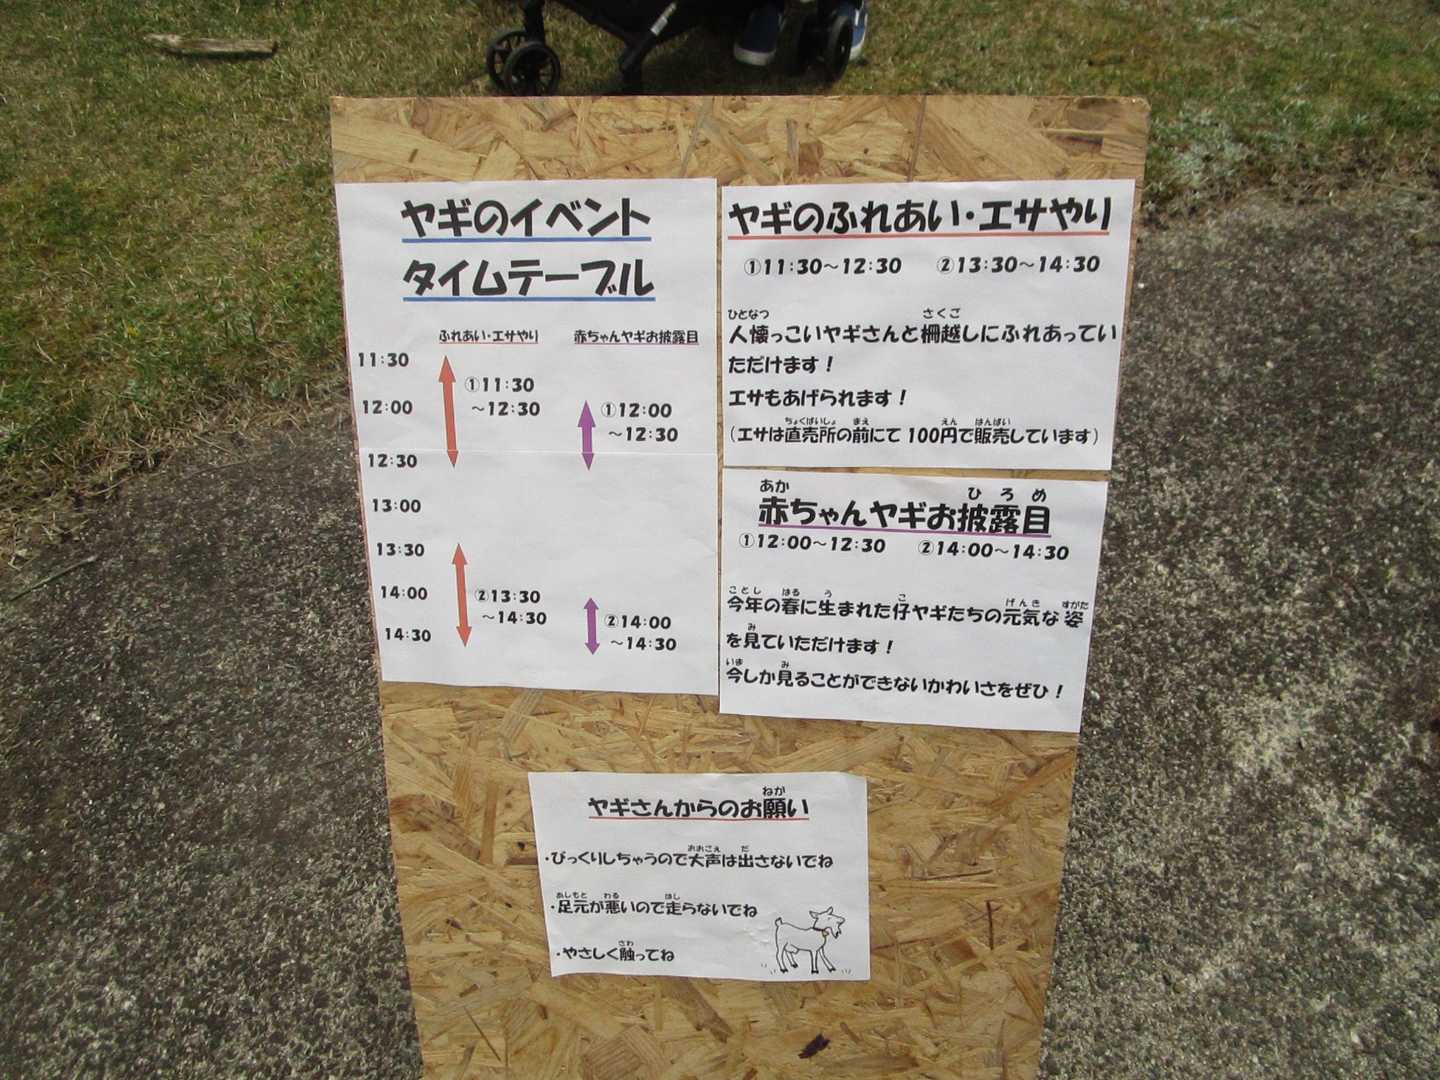 ヤギのイベント
タイムテーブル
ふれあい・エサやり 赤ちゃんヤギお披露目
11:30
①11:30
～12:30
12:00
①12:00
～12:30
12:30
13:00
13:30
14:00
②13:30
～14:30
②14:00
～14:30
14:30
ヤギのふれあい・エサやり
①11:30～12:30 ②13:30～14:30
ひとなつ さくご
人懐っこいヤギさんと柵越しにふれあってい
ただけます！
エサもあげられます！
ちょくばいしょ まえ えん はんばい
（エサは直売所の前にて100円で販売しています）
あか ひろめ
赤ちゃんヤギお披露目
①12:00～12:30 ②14:00～14:30
ことし はる う こ げんき すがた
今年の春に生まれた仔ヤギたちの元気な姿
み
を見ていただけます！
いま み
今しか見ることができないかわいさをぜひ！
ねが
ヤギさんからのお願い
おおごえ だ
・びっくりしちゃうので大声は出さないでね
あしもと わる はし
・足元が悪いので走らないでね
さわ
・やさしく触ってね